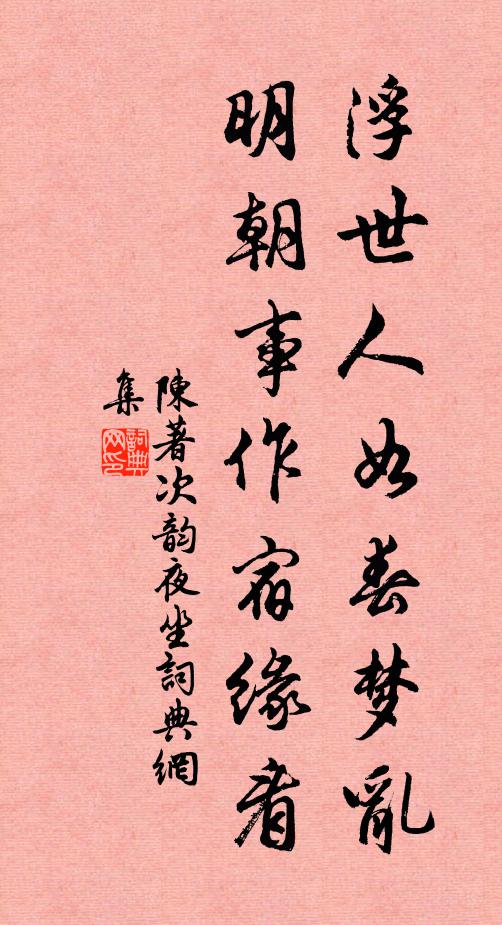 浮世人如春梦亂
明朝事作宿緣看
陳著次韵夜坐詞典網
集
詞典
网印